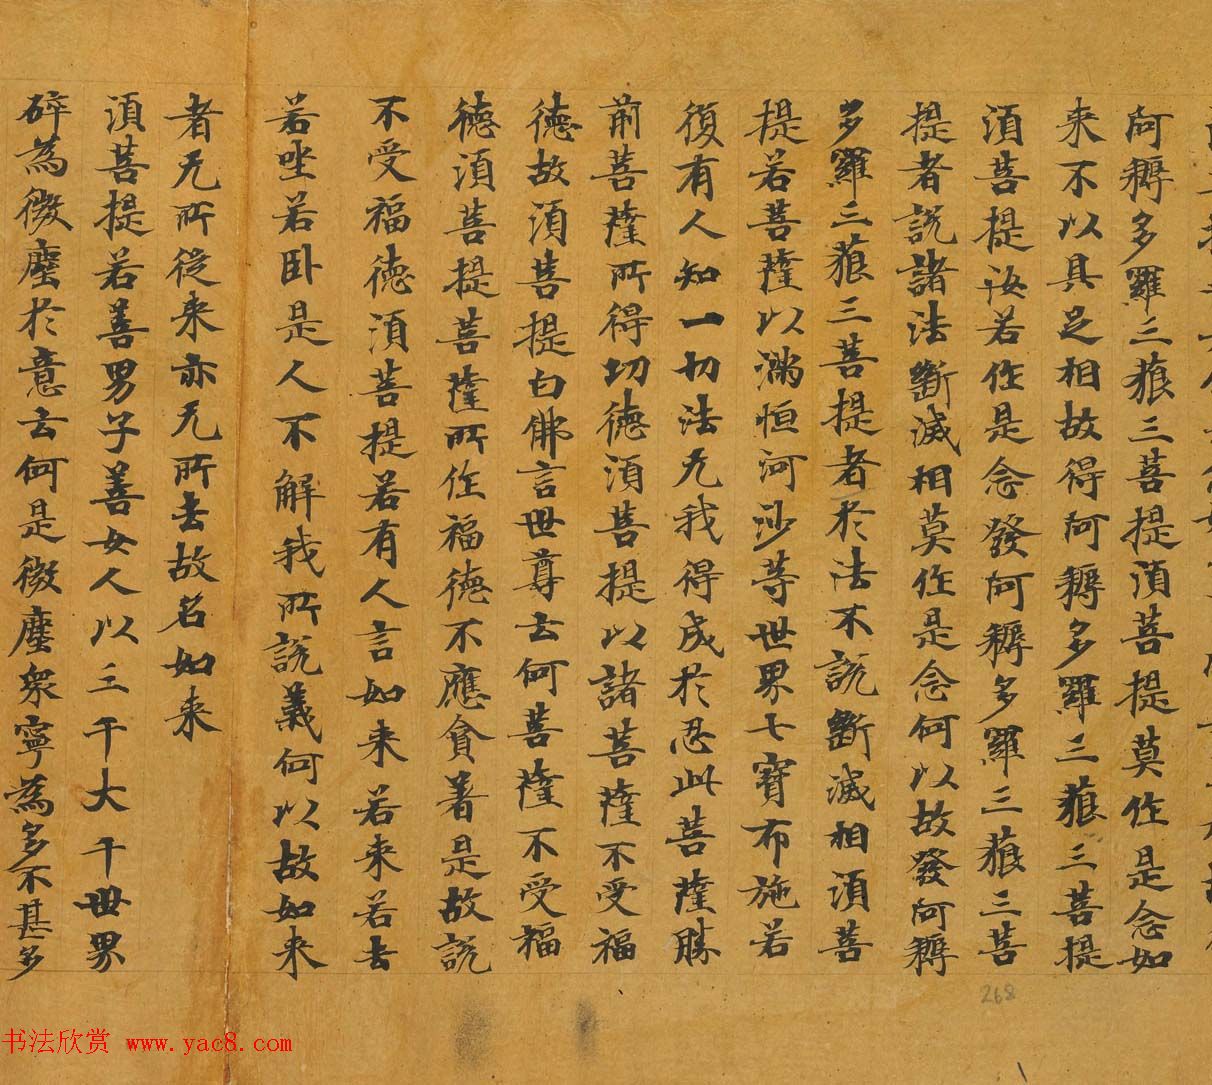 阿耨多羅三藐三菩提須菩提莫作是念如
来不以具足相故得阿耨多羅三藐三菩提
須菩提汝若作是念發阿耨多羅三藐三菩
提者說諸法斷滅相莫作是念何以故發阿耨
多羅三藐三菩提者於法不說斷滅相須菩
提若菩薩以滿恒河沙等世界七寶布施若
復有人知一切法无我得成於忍此菩薩勝
前菩薩所得切德須菩提以諸菩薩不受福
德故須菩提白佛言世尊云何菩薩不受福
德須菩提菩薩所作福德不應貪著是故說
不受福德須菩提若有人言如来若来若去
若坐若卧是人不解我所說義何以故如来
者无所從来亦无所去故名如来
須菩提若善男子善女人以三千大千世界
碎為微塵於意云何是微塵衆寧為多不甚多
268
书法欣赏 www.yac8.com